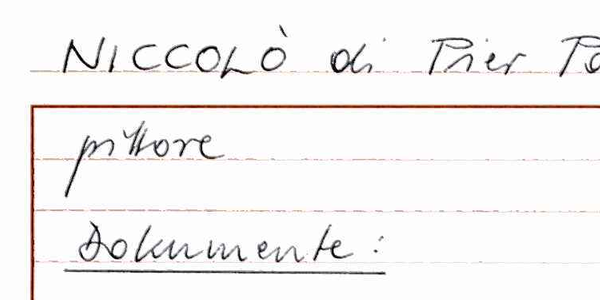 NICCOLÒ di Pier
pittore
Dokumente: